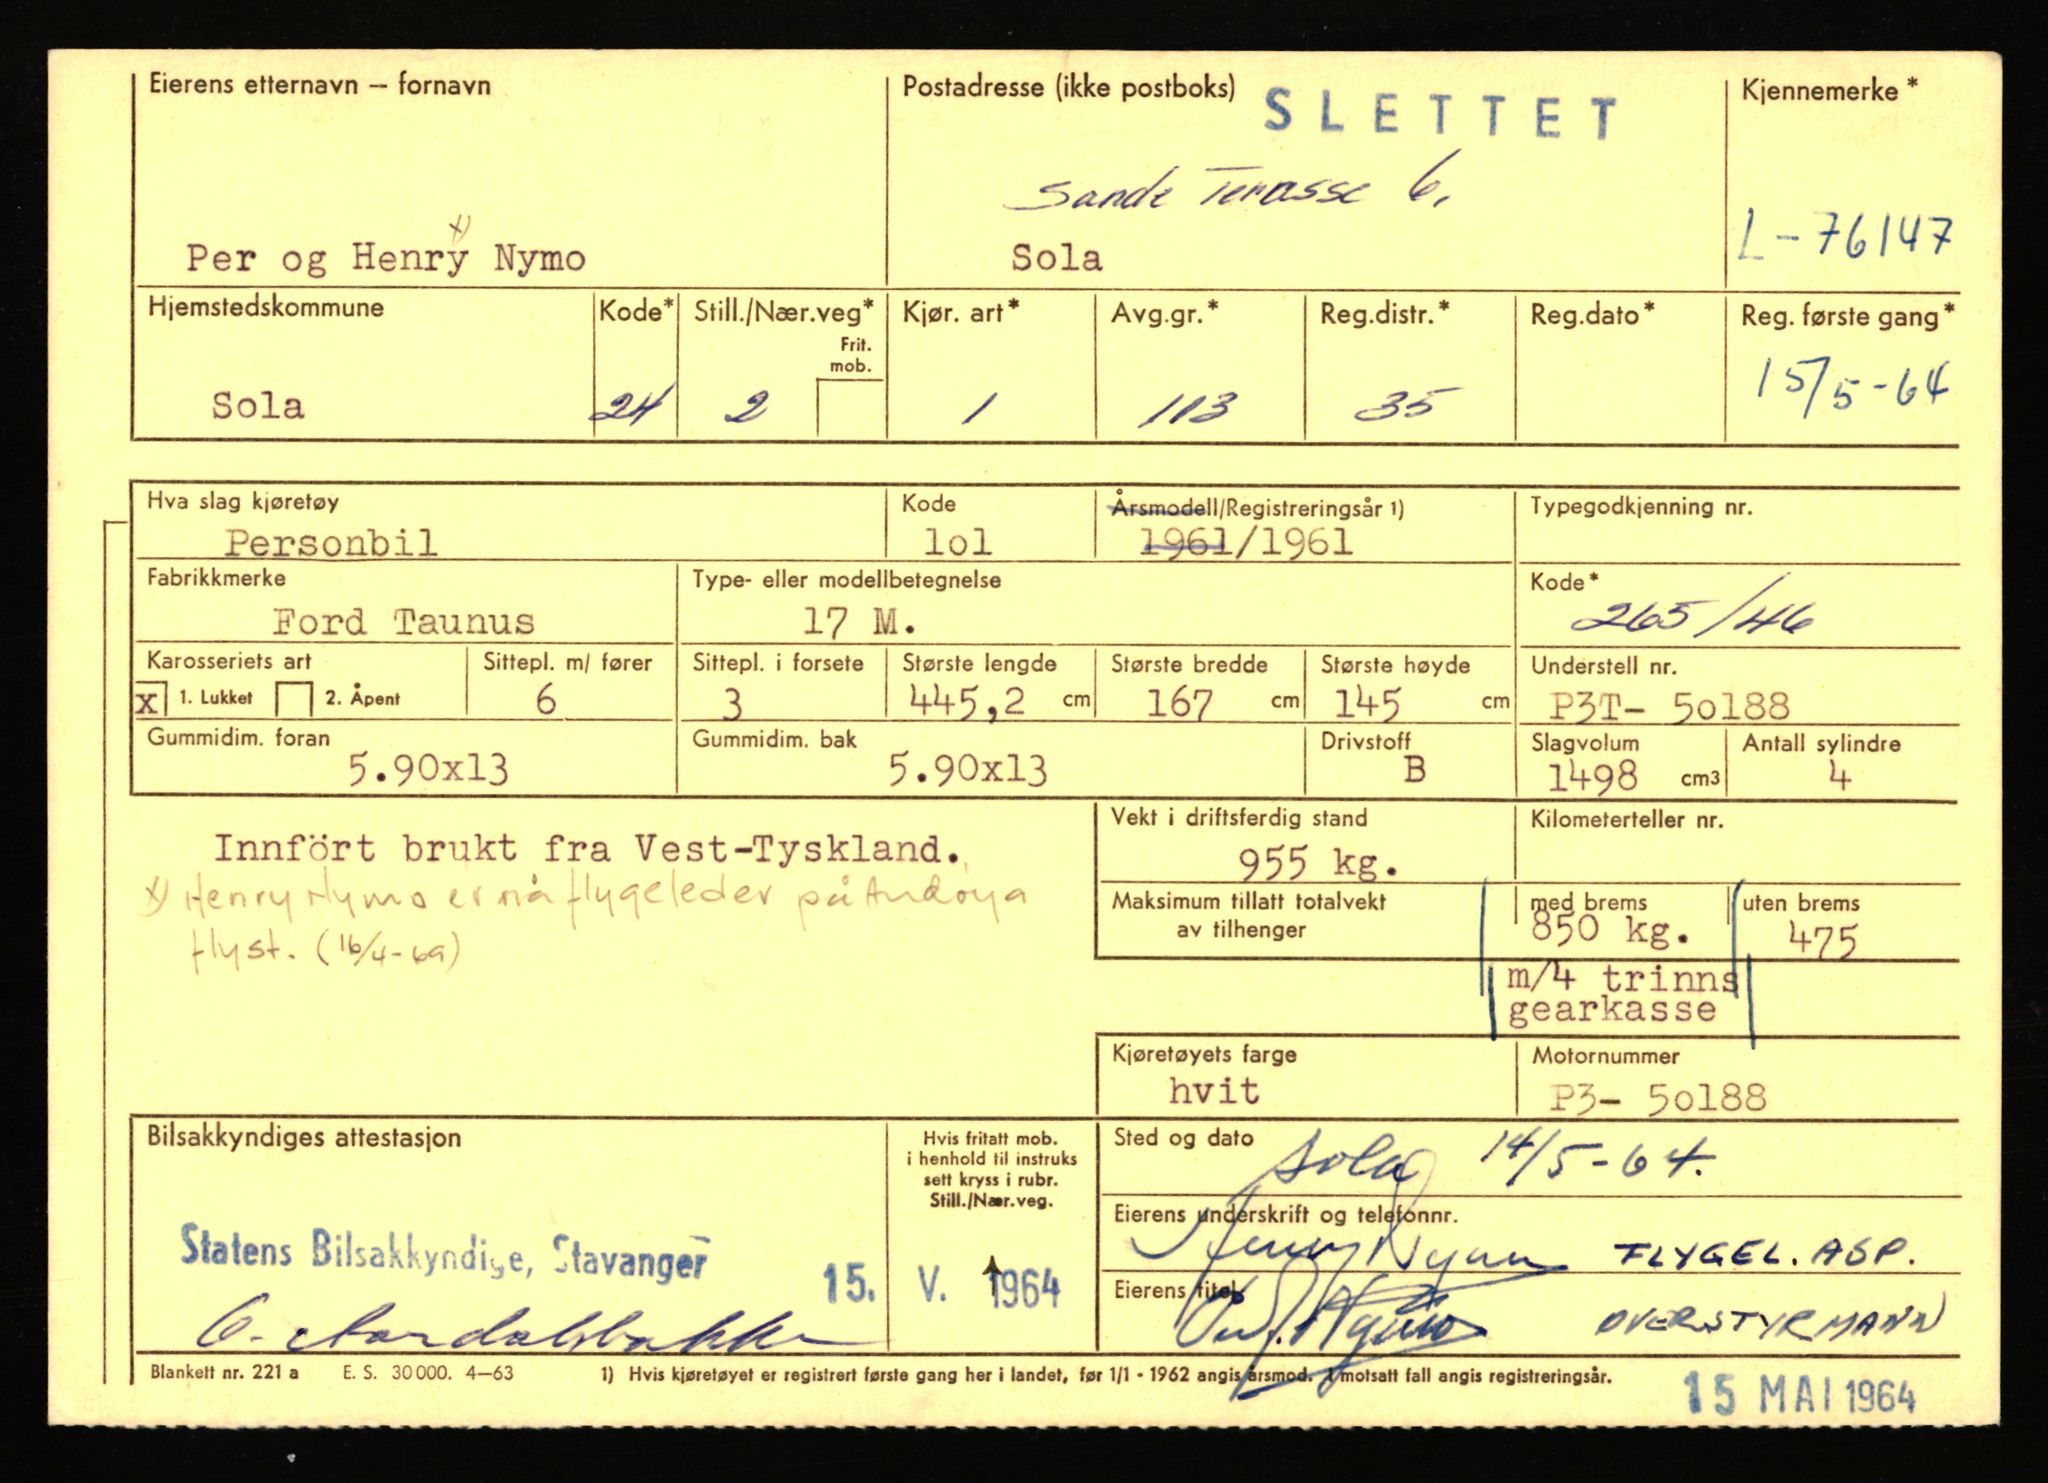 Eierens etternavn – fornavn
Postadresse (ikke postboks)
SLETTET
Kjennemerke *
Sande Terasse 6,
x)
Per og Henry Nymo
Sola
L-76147
Hjemstedskommune
Kode*
Still./Nær.veg*
Frit. mob.
Kjør. art*
Avg.gr.*
Reg.distr.*
Reg.dato*
Reg. første gang*
Sola
24
2
1
113
35
15/5-64
Hva slag kjøretøy
Kode
Årsmodell/Registreringsår 1)
Typegodkjenning nr.
Personbil
lol
1961/1961
Fabrikkmerke
Type- eller modellbetegnelse
Kode*
Ford Taunus
17 M.
265/46
Karosseriets art
Sittepl. m/ fører
Sittepl. i forsete
Største lengde
Største bredde
Største høyde
Understell nr.
x 1. Lukket
2. Åpent
6
3
445,2 cm
167 cm
145 cm
P3T- 5o188
Gummidim. foran
Gummidim. bak
Drivstoff
Slagvolum
Antall sylindre
5.90x13
5.90x13
B
1498 cm3
4
Vekt i driftsferdig stand
Kilometerteller nr.
Innfört brukt fra Vest-Tyskland.
955 kg.
x) Henry Nymo er nå flygeleder på Andøya
flyst. (16/4-69)
Maksimum tillatt totalvekt
av tilhenger
med brems
850 kg.
uten brems
475
m/4 trinns
gearkasse
Kjøretøyets farge
Motornummer
hvit
P3- 5o188
Bilsakkyndiges attestasjon
Hvis fritatt mob.
i henhold til instruks
sett kryss i rubr.
Still./Nær.veg.
Sted og dato
Sola 14/5-64.
Eierens underskrift og telefonnr.
Henry Nymo FLYGEL. ASP.
Statens Bilsakkyndige, Stavanger
15. V. 1964
Eierens titel
Nymo OVERSTYRMANN
Blankett nr. 221 a
E. S. 30 000. 4–63
1) Hvis kjøretøyet er registrert første gang her i landet, før 1/1 - 1962 angis årsmod. I motsatt fall angis registreringsår.
15 MAI 1964